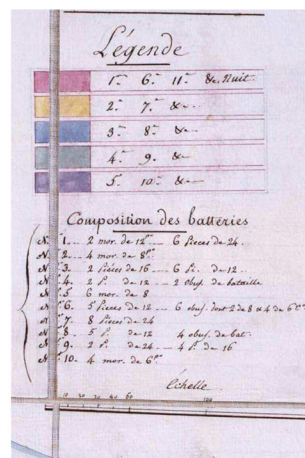 Légende
1re 6e 11e &c. Nuit
2e 7e &c
3e 8e &c
4e 9e &c
5e 10e &c
Composition des batteries
No 1... 2 mor. de 12po ... 6 Pieces de 24.
No 2... 4 mor. de 8po
No 3. 2 Pieces de 16 ... 6 Pi. de 12.
No 4. 2 P. de 12 ... 2 obus. de bataille
No 5 6 mor. de 8
No 6. 5 Pieces de 12 ... 6 obus. dont 2 de 8 & 4 de 6po
No 7. 8 Pieces de 24
No 8. 5 P. de 12 4 obus. de bat.
No 9. 2 P. de 24 ... 4 P. de 16
No 10. 4 mor. de 6po
échelle
10 20 30 40 60 120